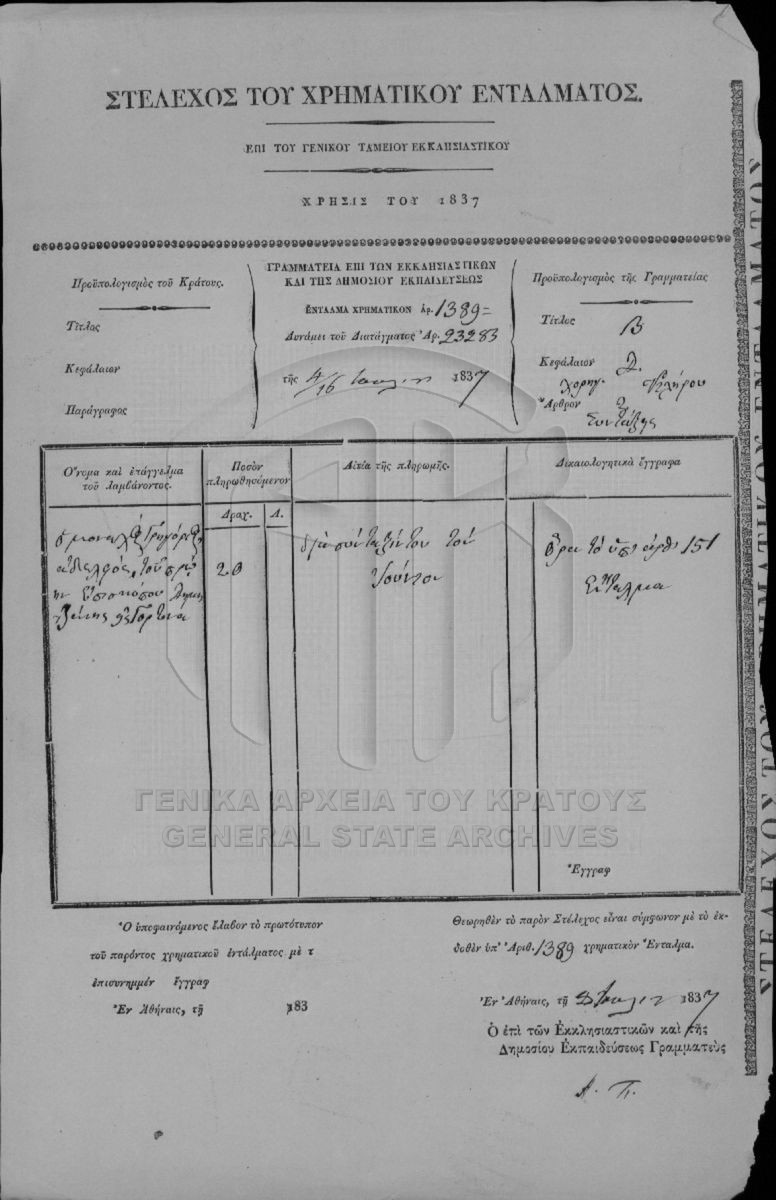 ΣΤΕΛΕΧΟΣ ΤΟΥ ΧΡΗΜΑΤΙΚΟΥ ΕΝΤΑΛΜΑΤΟΣ.
ΕΠΙ ΤΟΥ ΓΕΝΙΚΟΥ ΤΑΜΕΙΟΥ ΕΚΚΛΗΣΙΑΣΤΙΚΟΥ
ΧΡΗΣΙΣ ΤΟΥ 1837
Προϋπολογισμὸς τοῦ Κράτους.
Τίτλος
Κεφάλαιον
Παράγραφος
ΓΡΑΜΜΑΤΕΙΑ ΕΠΙ ΤΩΝ ΕΚΚΛΗΣΙΑΣΤΙΚΩΝ
ΚΑΙ ΤΗΣ ΔΗΜΟΣΙΟΥ ΕΚΠΑΙΔΕΥΣΕΩΣ
ΕΝΤΑΛΜΑ ΧΡΗΜΑΤΙΚΟΝ Ἀρ. 1389=
Δυνάμει τοῦ Διατάγματος Ἀρ. 23283
τῆς 4/16 Ἰουλίου 1837
Προϋπολογισμὸς τῆς Γραμματείας
Τίτλος Β
Κεφάλαιον
Ἄρθρον
Συντάξεις
Ὄνομα καὶ ἐπάγγελμα
τοῦ λαμβάνοντος.
Ποσὸν
πληρωθησόμενον
Δραχ. Λ.
Αἰτία τῆς πληρωμῆς.
Δικαιολογητικὰ ἔγγραφα
ἀδελφὸς τοῦ πρώ
ην Ἐπισκόπου
20
διὰ σύνταξίν του τοῦ
Ἰουνίου
ὅρα τὸ ὑπ' ἀρθ 151
Ἔνταλμα
Ἔγγραφ
Ὁ ὑποφαινόμενος ἔλαβον τὸ πρωτότυπον
τοῦ παρόντος χρηματικοῦ ἐντάλματος μὲ τ
ἐπισυνημμέν ἔγγραφ
Ἐν Ἀθήναις, τῇ 183
Θεωρηθὲν τὸ παρὸν Στέλεχος εἶναι σύμφωνον μὲ τὸ ἐκ-
δοθὲν ὑπ' Ἀριθ. 1389 χρηματικὸν Ἔνταλμα.
Ἐν Ἀθήναις, τῇ 8 Ἰουλίου 1837
Ὁ ἐπὶ τῶν Ἐκκλησιαστικῶν καὶ τῆς
Δημοσίου Ἐκπαιδεύσεως Γραμματεὺς
Α. Π.
ΓΕΝΙΚΑ ΑΡΧΕΙΑ ΤΟΥ ΚΡΑΤΟΥΣ
GENERAL STATE ARCHIVES